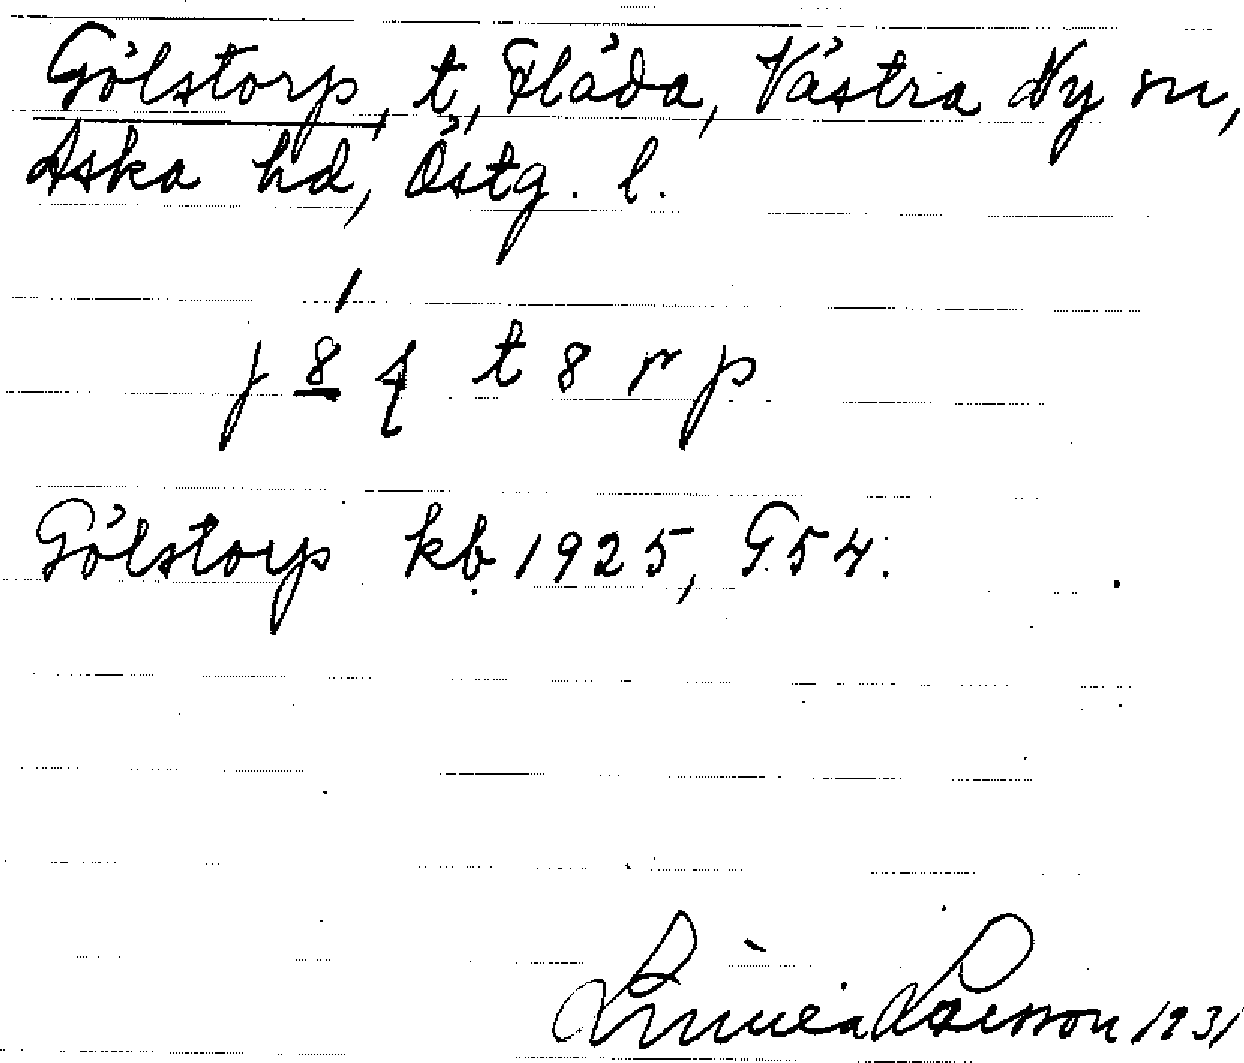 Gölstorp, t, Flåda, Västra Ny sn,
Aska hd, Östg. l.
Gölstorp kb 1925, G54.
Linnéa Larsson 1931